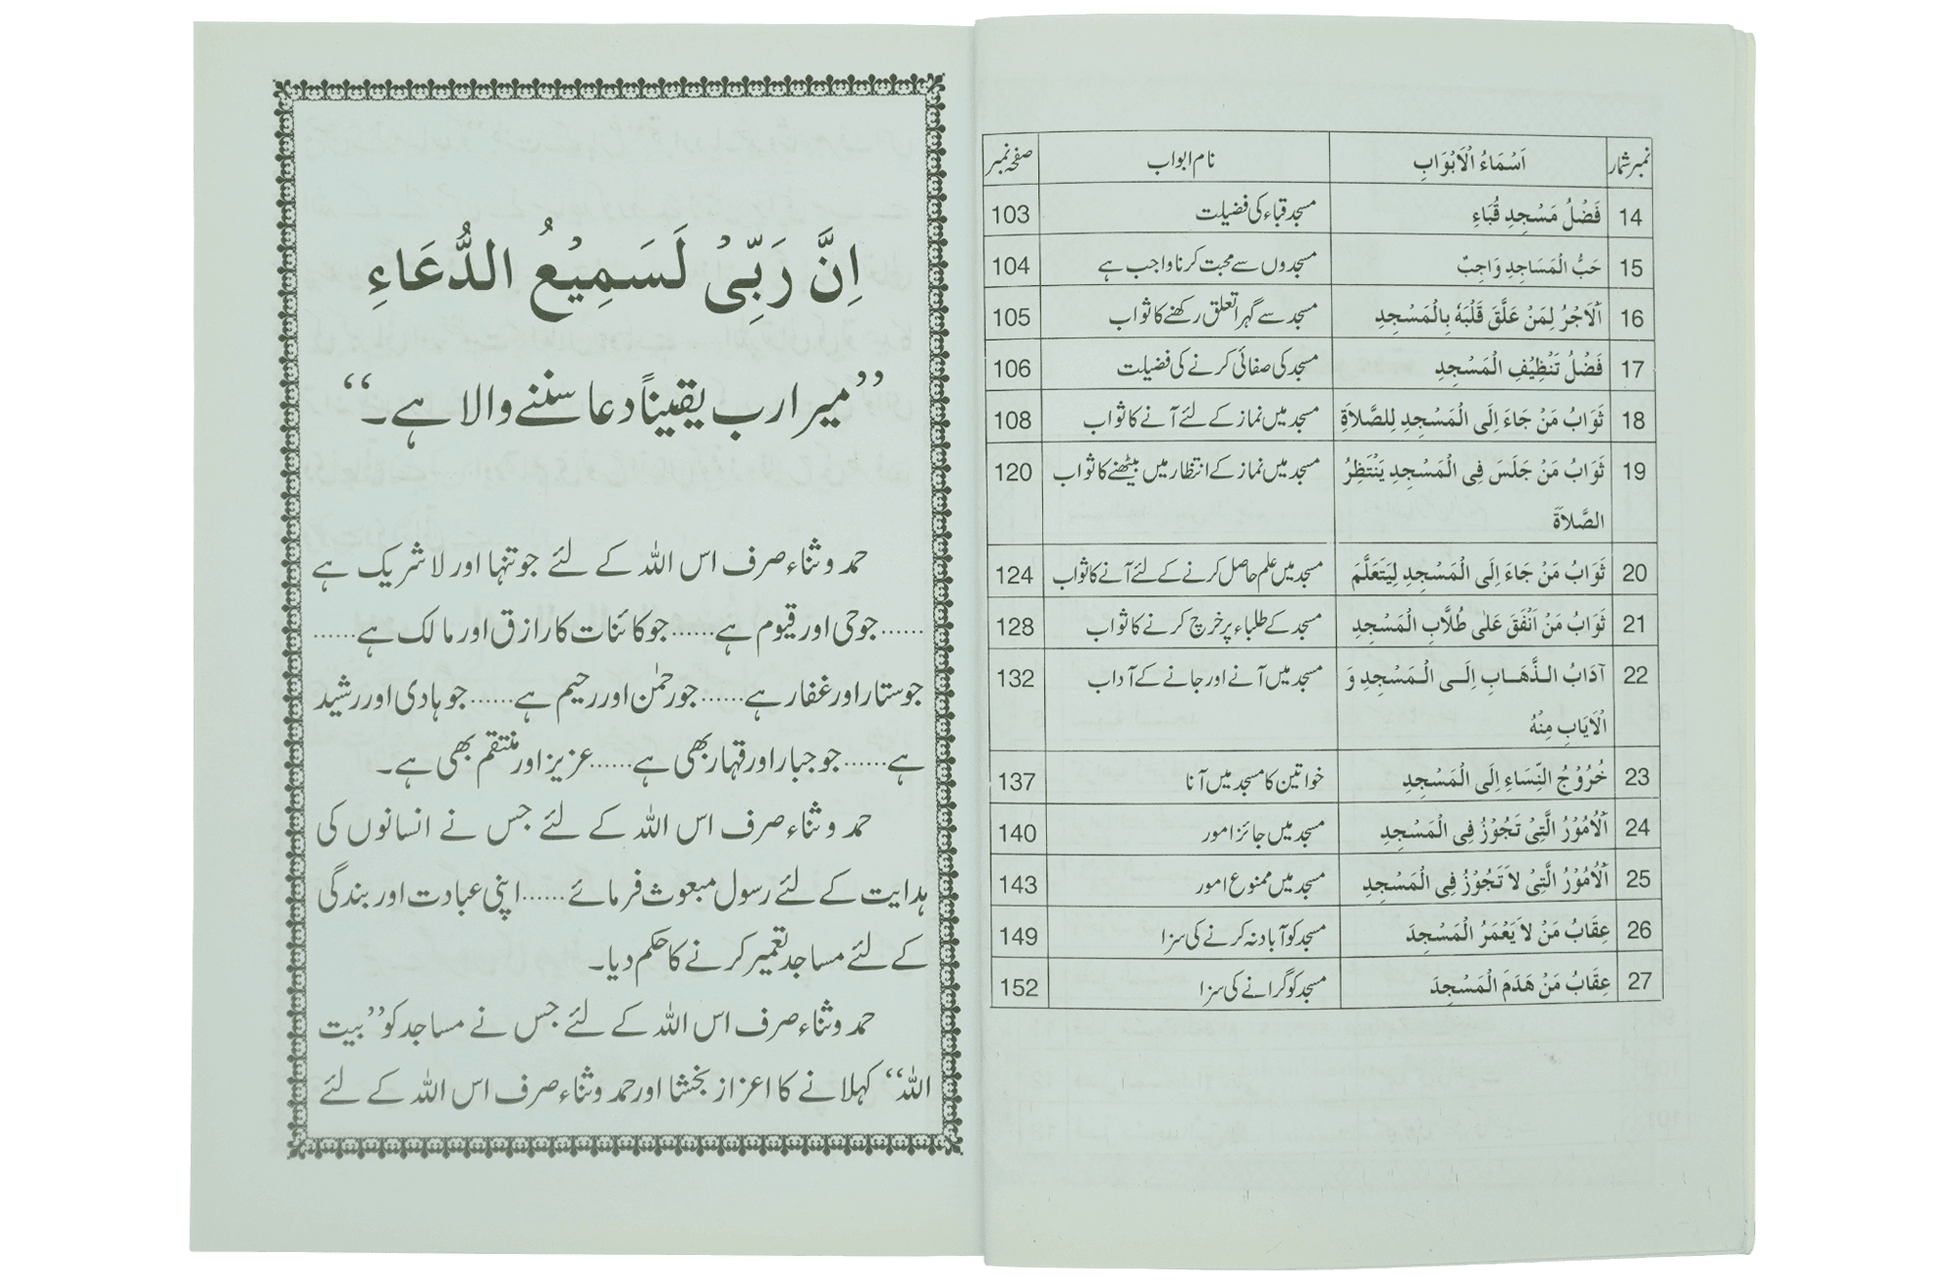 نمبر شمار اَسْمَاءُ الْاَبْوَابِ نام ابواب صفحہ نمبر
14 فَضْلُ مَسْجِدِ قُبَاءِ مسجد قباء کی فضیلت 103
15 حَبُّ الْمَسَاجِدِ وَاجِبٌ مسجدوں سے محبت کرنا واجب ہے 104
16 اَلْاَجْرُ لِمَنْ عَلَّقَ قَلْبَهُ بِالْمَسْجِدِ مسجد سے گہرا تعلق رکھنے کا ثواب 105
17 فَضْلُ تَنْظِيْفِ الْمَسْجِدِ مسجد کی صفائی کرنے کی فضیلت 106
18 ثَوَابُ مَنْ جَاءَ اِلَى الْمَسْجِدِ لِلصَّلاَةِ مسجد میں نماز کے لئے آنے کا ثواب 108
19 ثَوَابُ مَنْ جَلَسَ فِى الْمَسْجِدِ يَنْتَظِرُ مسجد میں نماز کے انتظار میں بیٹھنے کا ثواب 120
الصَّلاَةَ
20 ثَوَابُ مَنْ جَاءَ اِلَى الْمَسْجِدِ لِيَتَعَلَّمَ مسجد میں علم حاصل کرنے کے لئے آنے کا ثواب 124
21 ثَوَابُ مَنْ اَنْفَقَ عَلٰى طُلَّابِ الْمَسْجِدِ مسجد کے طلباء پر خرچ کرنے کا ثواب 128
22 آدَابُ الـذَّهَـابِ اِلَـى الْـمَسْجِدِ وَ مسجد میں آنے اور جانے کے آداب 132
الْاَيَابِ مِنْهُ
23 خُرُوْجُ النِّسَاءِ اِلَى الْمَسْجِدِ خواتین کا مسجد میں آنا 137
24 اَلْاُمُوْرُ الَّتِىْ تَجُوْزُ فِى الْمَسْجِدِ مسجد میں جائز امور 140
25 اَلْاُمُوْرُ الَّتِىْ لاَ تَجُوْزُ فِى الْمَسْجِدِ مسجد میں ممنوع امور 143
26 عِقَابُ مَنْ لاَ يَعْمَرُ الْمَسْجِدَ مسجد کو آباد نہ کرنے کی سزا 149
27 عِقَابُ مَنْ هَدَمَ الْمَسْجِدَ مسجد کو گرانے کی سزا 152
اِنَّ رَبِّىْ لَسَمِيْعُ الدُّعَاءِ
’’میرا رب یقیناً دعا سننے والا ہے۔‘‘
حمد وثناء صرف اس اللہ کے لئے جو تنہا اور لا شریک ہے
......جو حی اور قیوم ہے......جو کائنات کا رازق اور مالک ہے......
جو ستار اور غفار ہے......جو رحمٰن اور رحیم ہے......جو ہادی اور رشید
ہے......جو جبار اور قہار بھی ہے......عزیز اور منتقم بھی ہے۔
حمد وثناء صرف اس اللہ کے لئے جس نے انسانوں کی
ہدایت کے لئے رسول مبعوث فرمائے......اپنی عبادت اور بندگی
کے لئے مساجد تعمیر کرنے کا حکم دیا۔
حمد وثناء صرف اس اللہ کے لئے جس نے مساجد کو ’’بیت
اللہ‘‘ کہلانے کا اعزاز بخشا اور حمد وثناء صرف اس اللہ کے لئے